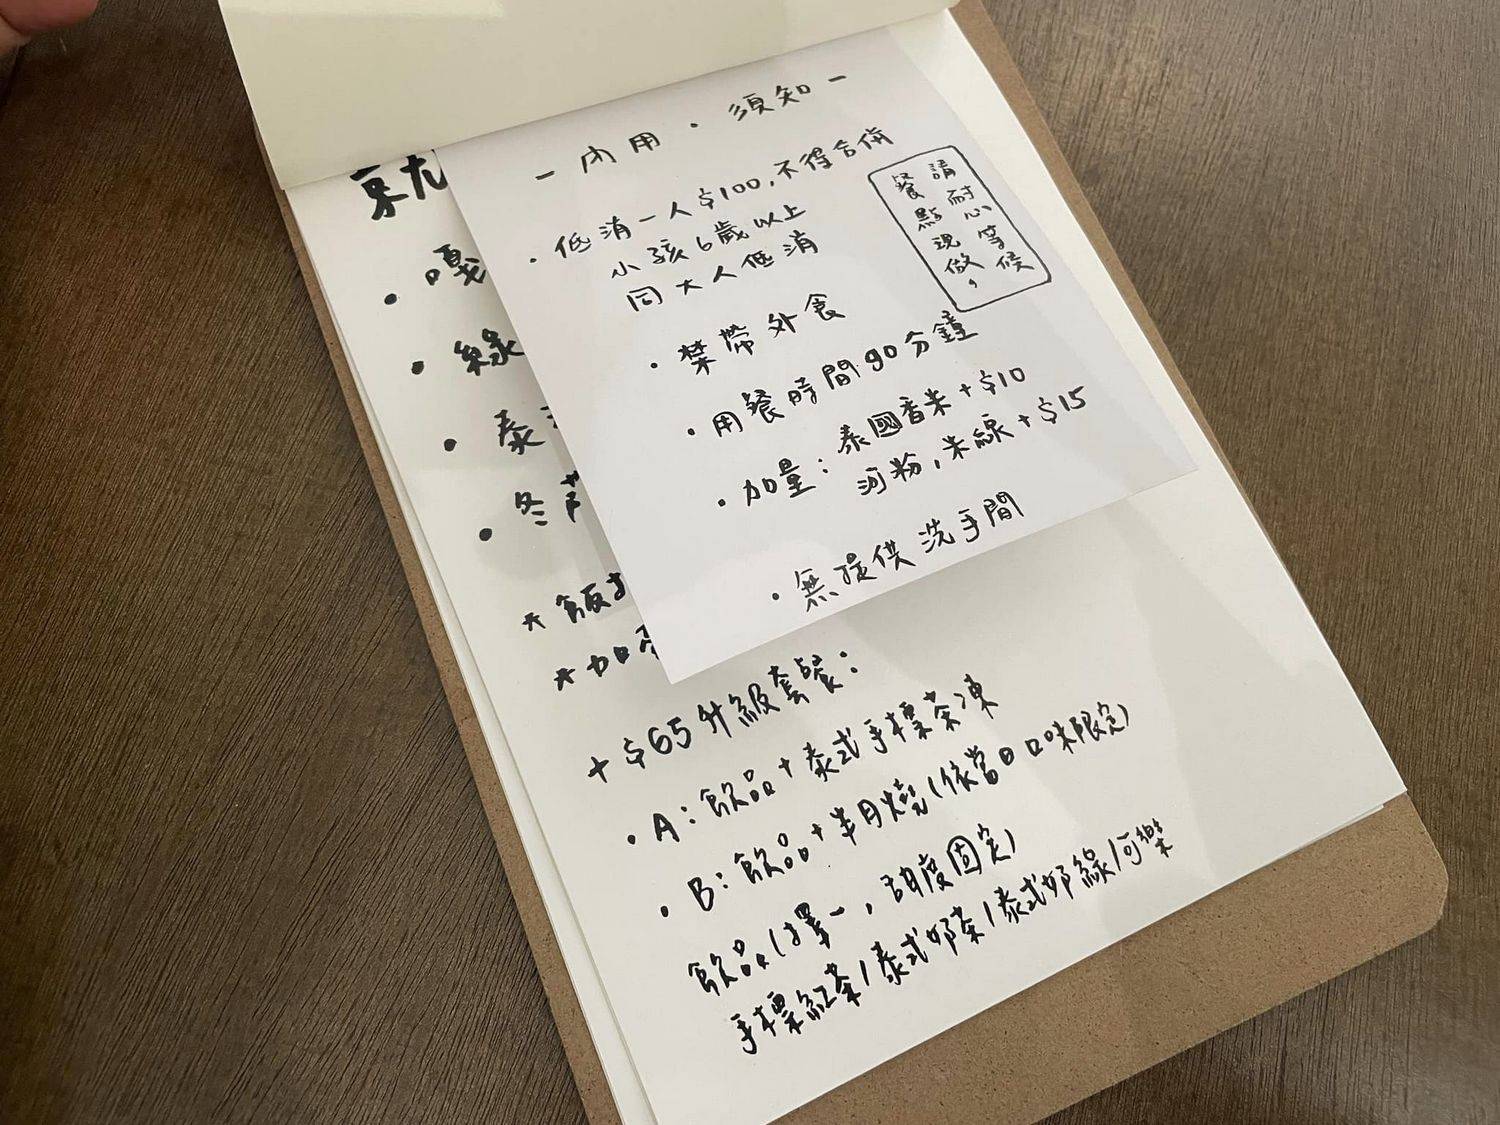 －內用・須知－
・低消一人$100,不得合併
小孩6歲以上
同大人低消
餐點現做，
請耐心等候
・禁帶外食
・用餐時間90分鐘
・加量：泰國香米+$10
河粉,米線+$15
・無提供洗手間
就
・嘎
・綠
・泰
・冬
*飯
*加蛋
+$65升級套餐：
・A：飲品+泰式手標茶凍
・B：飲品+半月燒(依當日口味限定)
飲品(擇一，甜度固定)
手標紅茶/泰式奶茶/泰式奶綠/可樂